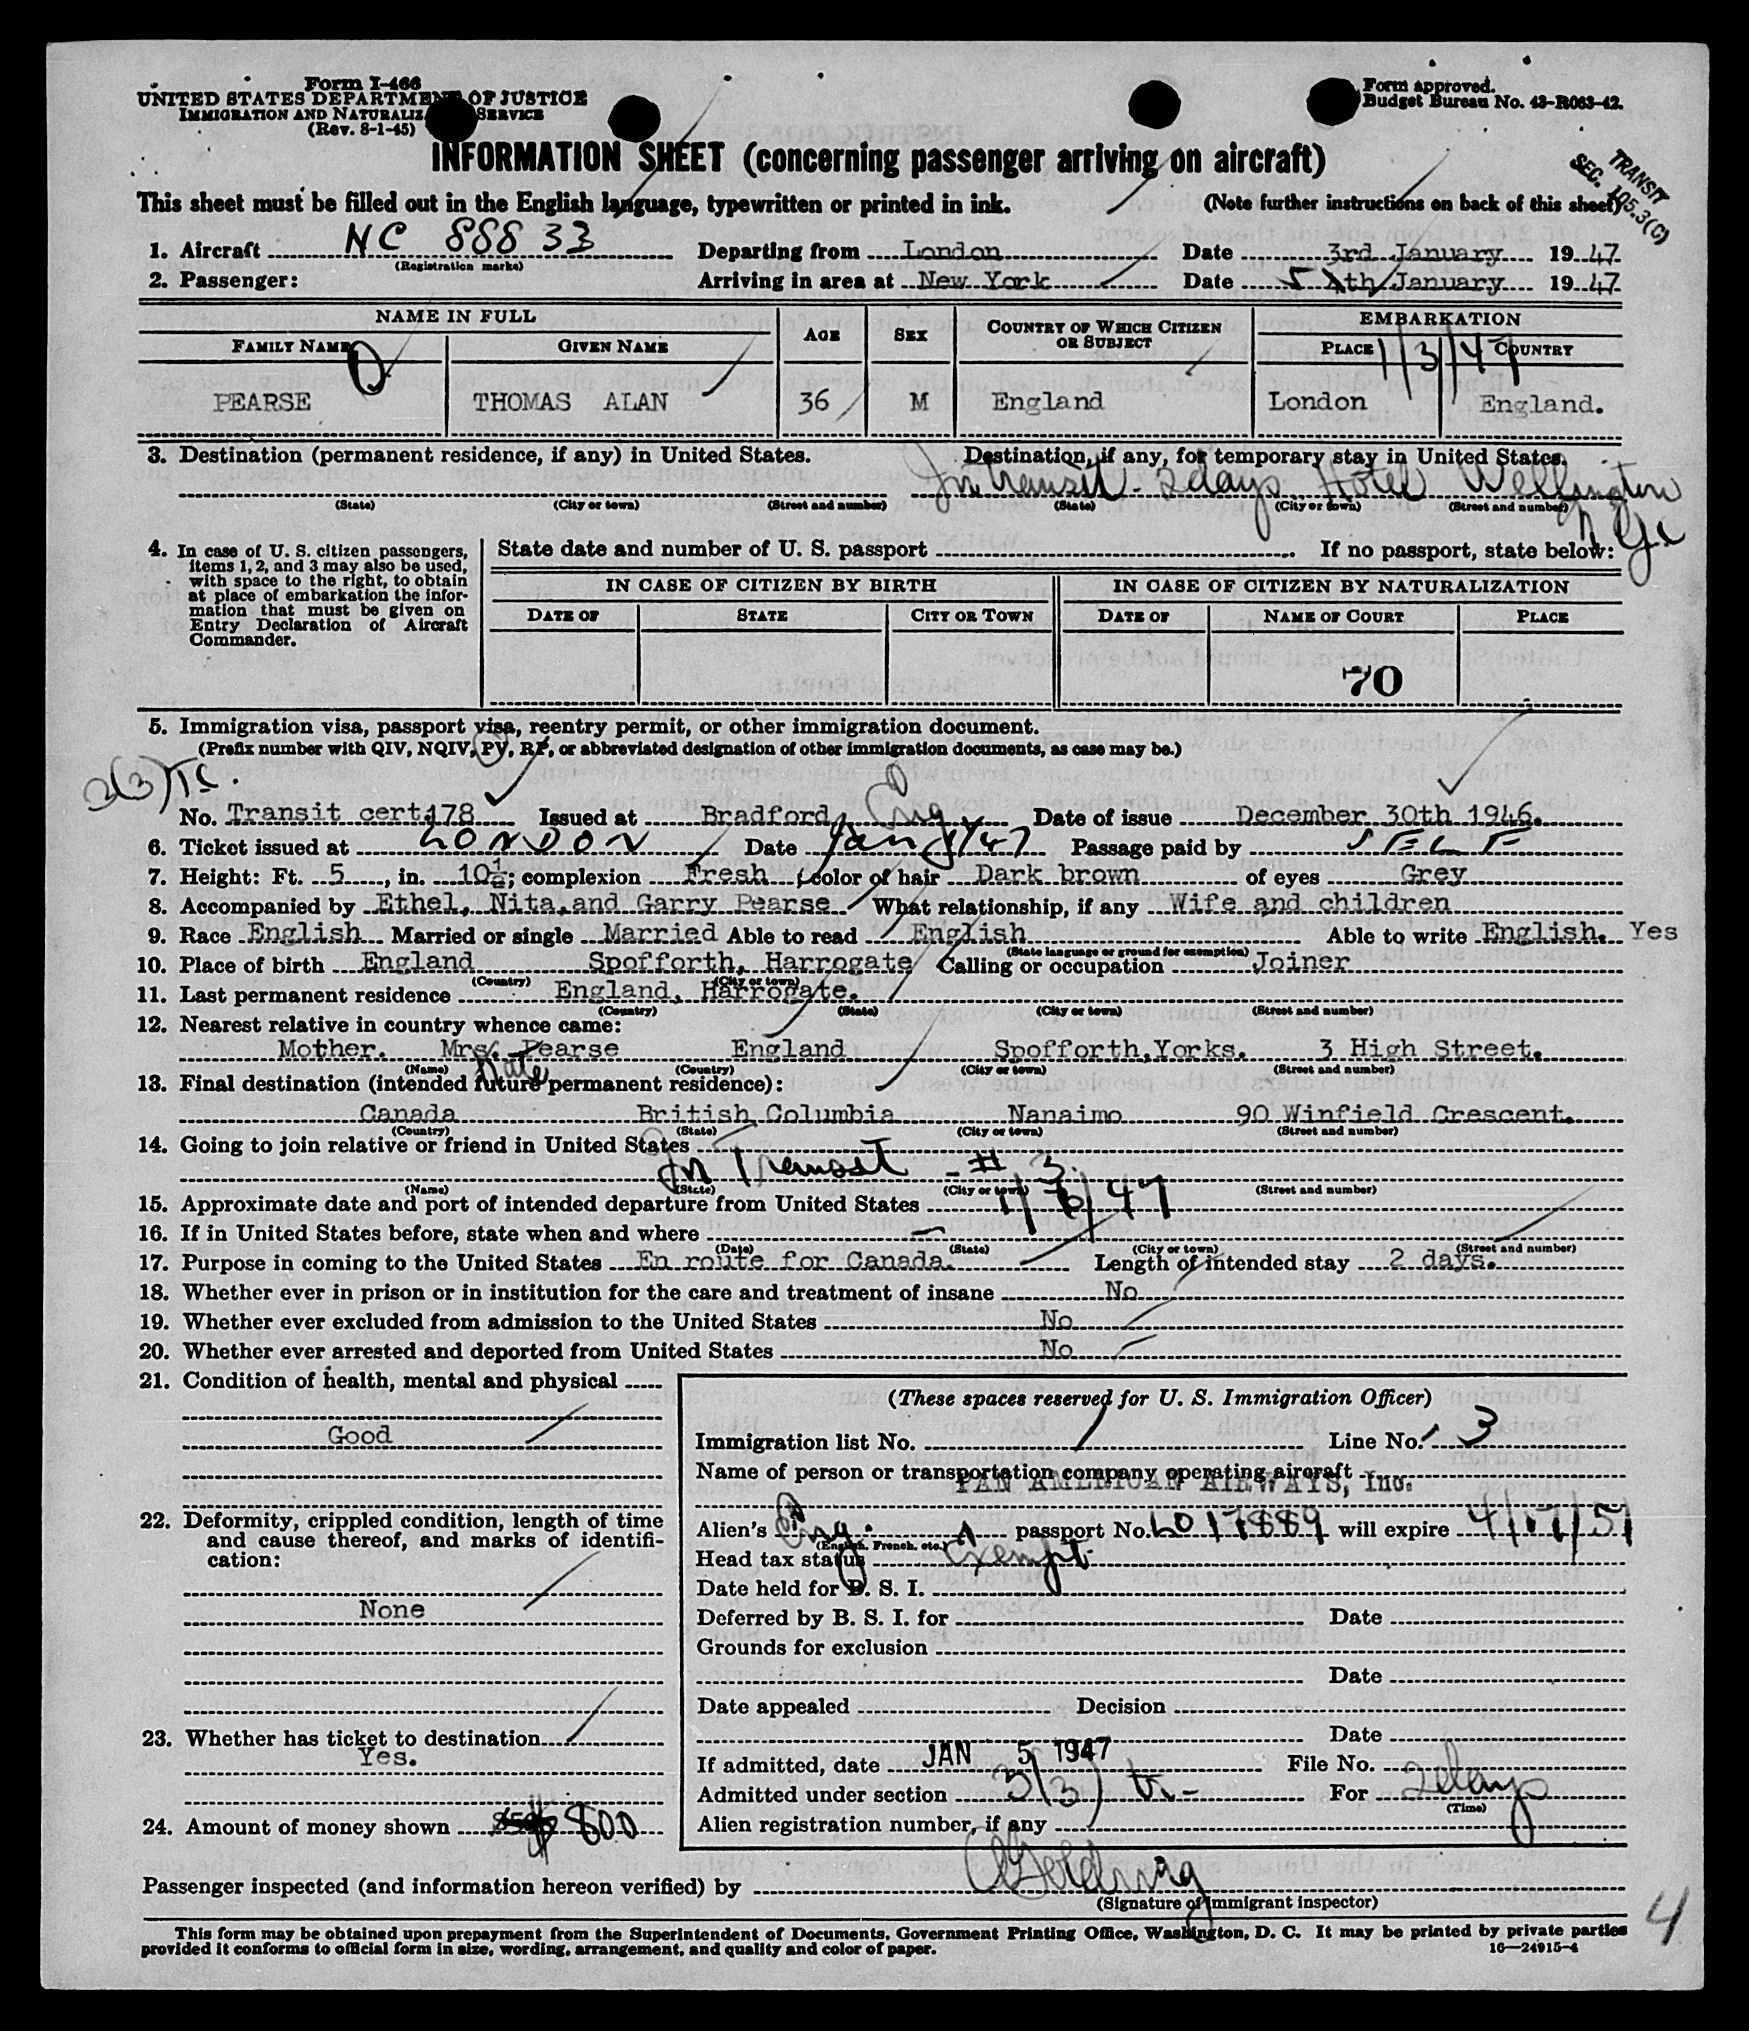 Form I-466
UNITED STATES DEPARTMENT OF JUSTICE
IMMIGRATION AND NATURALIZ SERVICE
(Rev. 8-1-45)
Form approved.
Budget Bureau No. 43-R063-42.
INFORMATION SHEET (concerning passenger arriving on aircraft)
TRANSIT
SEC. 105.3(C)
This sheet must be filled out in the English language, typewritten or printed in ink. (Note further instructions on back of this sheet)
1. Aircraft NC 88833 Departing from London Date 3rd January 1947
(Registration marks)
2. Passenger: Arriving in area at New York Date 5 th January 1947
NAME IN FULL AGE SEX COUNTRY OF WHICH CITIZEN OR SUBJECT EMBARKATION
FAMILY NAME GIVEN NAME PLACE COUNTRY
1/3/47
PEARSE THOMAS ALAN 36 M England London England.
3. Destination (permanent residence, if any) in United States. Destination, if any, for temporary stay in United States.
In transit - 2 days Hotel Wellington
(State) (City or town) (Street and number) (State) (City or town) (Street and number)
4. In case of U. S. citizen passengers, items 1, 2, and 3 may also be used, with space to the right, to obtain at place of embarkation the information that must be given on Entry Declaration of Aircraft Commander.
State date and number of U. S. passport If no passport, state below:
IN CASE OF CITIZEN BY BIRTH IN CASE OF CITIZEN BY NATURALIZATION
DATE OF STATE CITY OR TOWN DATE OF NAME OF COURT PLACE
70
5. Immigration visa, passport visa, reentry permit, or other immigration document.
(Prefix number with QIV, NQIV, PV, RP, or abbreviated designation of other immigration documents, as case may be.)
No. Transit cert.178 Issued at Bradford, Eng Date of issue December 30th 1946.
6. Ticket issued at LONDON Date Jan 3/47 Passage paid by SELF
7. Height: Ft. 5, in. 10½; complexion Fresh; color of hair Dark brown of eyes Grey
8. Accompanied by Ethel, Nita, and Garry Pearse What relationship, if any Wife and children
9. Race English Married or single Married Able to read English Able to write English. Yes
(State language or ground for exemption)
10. Place of birth England Spofforth, Harrogate Calling or occupation Joiner
(Country) (City or town)
11. Last permanent residence England, Harrogate.
(Country) (State) (City or town) (Street and number)
12. Nearest relative in country whence came:
Mother. Mrs. Pearse England Spofforth, Yorks. 3 High Street.
(Name) (Country) (City or town) (Street and number)
13. Final destination (intended future permanent residence):
Canada British Columbia Nanaimo 90 Winfield Crescent.
(Country) (State) (City or town) (Street and number)
14. Going to join relative or friend in United States
In Transit - # 3.
(Name) (State) (City or town) (Street and number)
15. Approximate date and port of intended departure from United States 1/6/47
16. If in United States before, state when and where —
(Date) (State) (City or town) (Street and number)
17. Purpose in coming to the United States En route for Canada. Length of intended stay 2 days.
18. Whether ever in prison or in institution for the care and treatment of insane No
19. Whether ever excluded from admission to the United States No
20. Whether ever arrested and deported from United States No
21. Condition of health, mental and physical
Good
22. Deformity, crippled condition, length of time and cause thereof, and marks of identification:
None
23. Whether has ticket to destination
Yes.
24. Amount of money shown $800
(These spaces reserved for U. S. Immigration Officer)
Immigration list No. 1 Line No. 3
Name of person or transportation company operating aircraft
PAN AMERICAN AIRWAYS, Inc.
Alien's Eng. passport No. L017889 will expire 4/17/51
(English, French, etc.)
Head tax status Exempt
Date held for B. S. I.
Deferred by B. S. I. for Date
Grounds for exclusion
Date
Date appealed Decision
Date
If admitted, date JAN 5 1947 File No.
Admitted under section 3(3) tr- For 2 days
(Time)
Alien registration number, if any
Passenger inspected (and information hereon verified) by
(Signature of immigrant inspector)
This form may be obtained upon prepayment from the Superintendent of Documents, Government Printing Office, Washington, D. C. It may be printed by private parties
provided it conforms to official form in size, wording, arrangement, and quality and color of paper.
16—24915-4
4